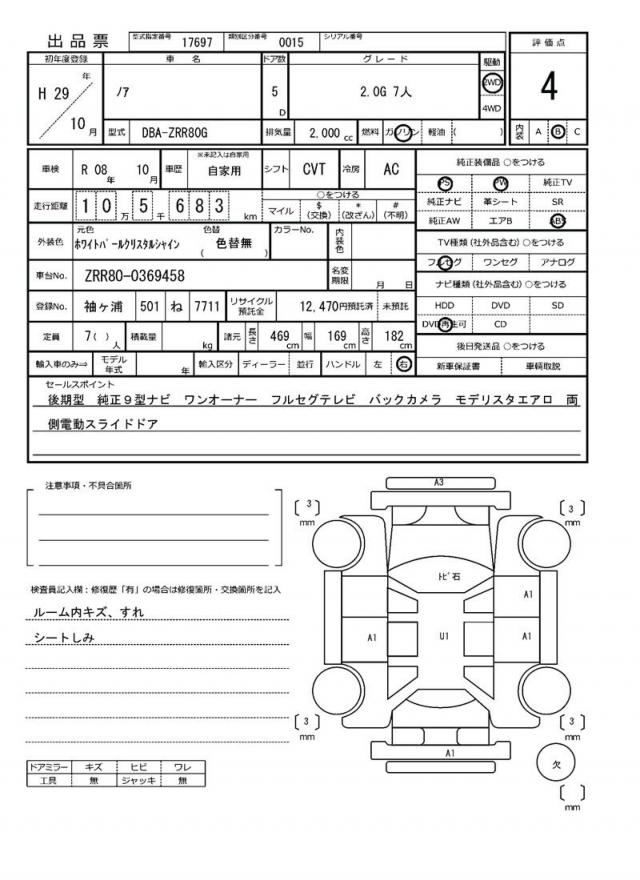 出品票 型式指定番号 17697 類別区分番号 0015 シリアル番号
評価点
4
内装 A B C
初年度登録 車名 ドア数 グレード 駆動
H 29 年 10 月
ノア
5 D
2.0G 7人
2WD
4WD
型式 DBA-ZRR80G 排気量 2,000 cc 燃料 ガソリン 軽油 ( )
車検 R 08 年 10 月 車歴 ※未記入は自家用 自家用 シフト CVT 冷房 AC
走行距離 1 0 万 5 千 6 8 3 km
○をつける
マイル $ (交換) * (改ざん) # (不明)
外装色 元色 ホワイトパールクリスタルシャイン 色替 ( 色替無 ) カラーNo. 内装色
車台No. ZRR80-0369458 名変期限 月 日
登録No. 袖ヶ浦 501 ね 7711 リサイクル預託金 12,470円預託済 未預託
定員 7( ) 人 積載量 kg 諸元 長さ 469 cm 幅 169 cm 高さ 182 cm
輸入車のみ⇨ モデル年式 年 輸入区分 ディーラー 並行 ハンドル 左 右
純正装備品 ○をつける
PS PW 純正TV
純正ナビ 革シート SR
純正AW エアB ABS
TV種類 (社外品含む) ○をつける
フルセグ ワンセグ アナログ
ナビ種類 (社外品含む) ○をつける
HDD DVD SD
DVD再生可 CD
後日発送品 ○をつける
新車保証書 車輌取説
セールスポイント
後期型 純正9型ナビ ワンオーナー フルセグテレビ バックカメラ モデリスタエアロ 両
側電動スライドドア
注意事項・不具合箇所
検査員記入欄：修復歴「有」の場合は修復箇所・交換箇所を記入
ルーム内キズ、すれ
シートしみ
ドアミラー キズ ヒビ ワレ
工具 無 ジャッキ 無
A3
[ 3 ] mm
[ 3 ] mm
トビ石
A1
A1 U1 A1
[ 3 ] mm
[ 3 ] mm
A1
欠
[ ] mm